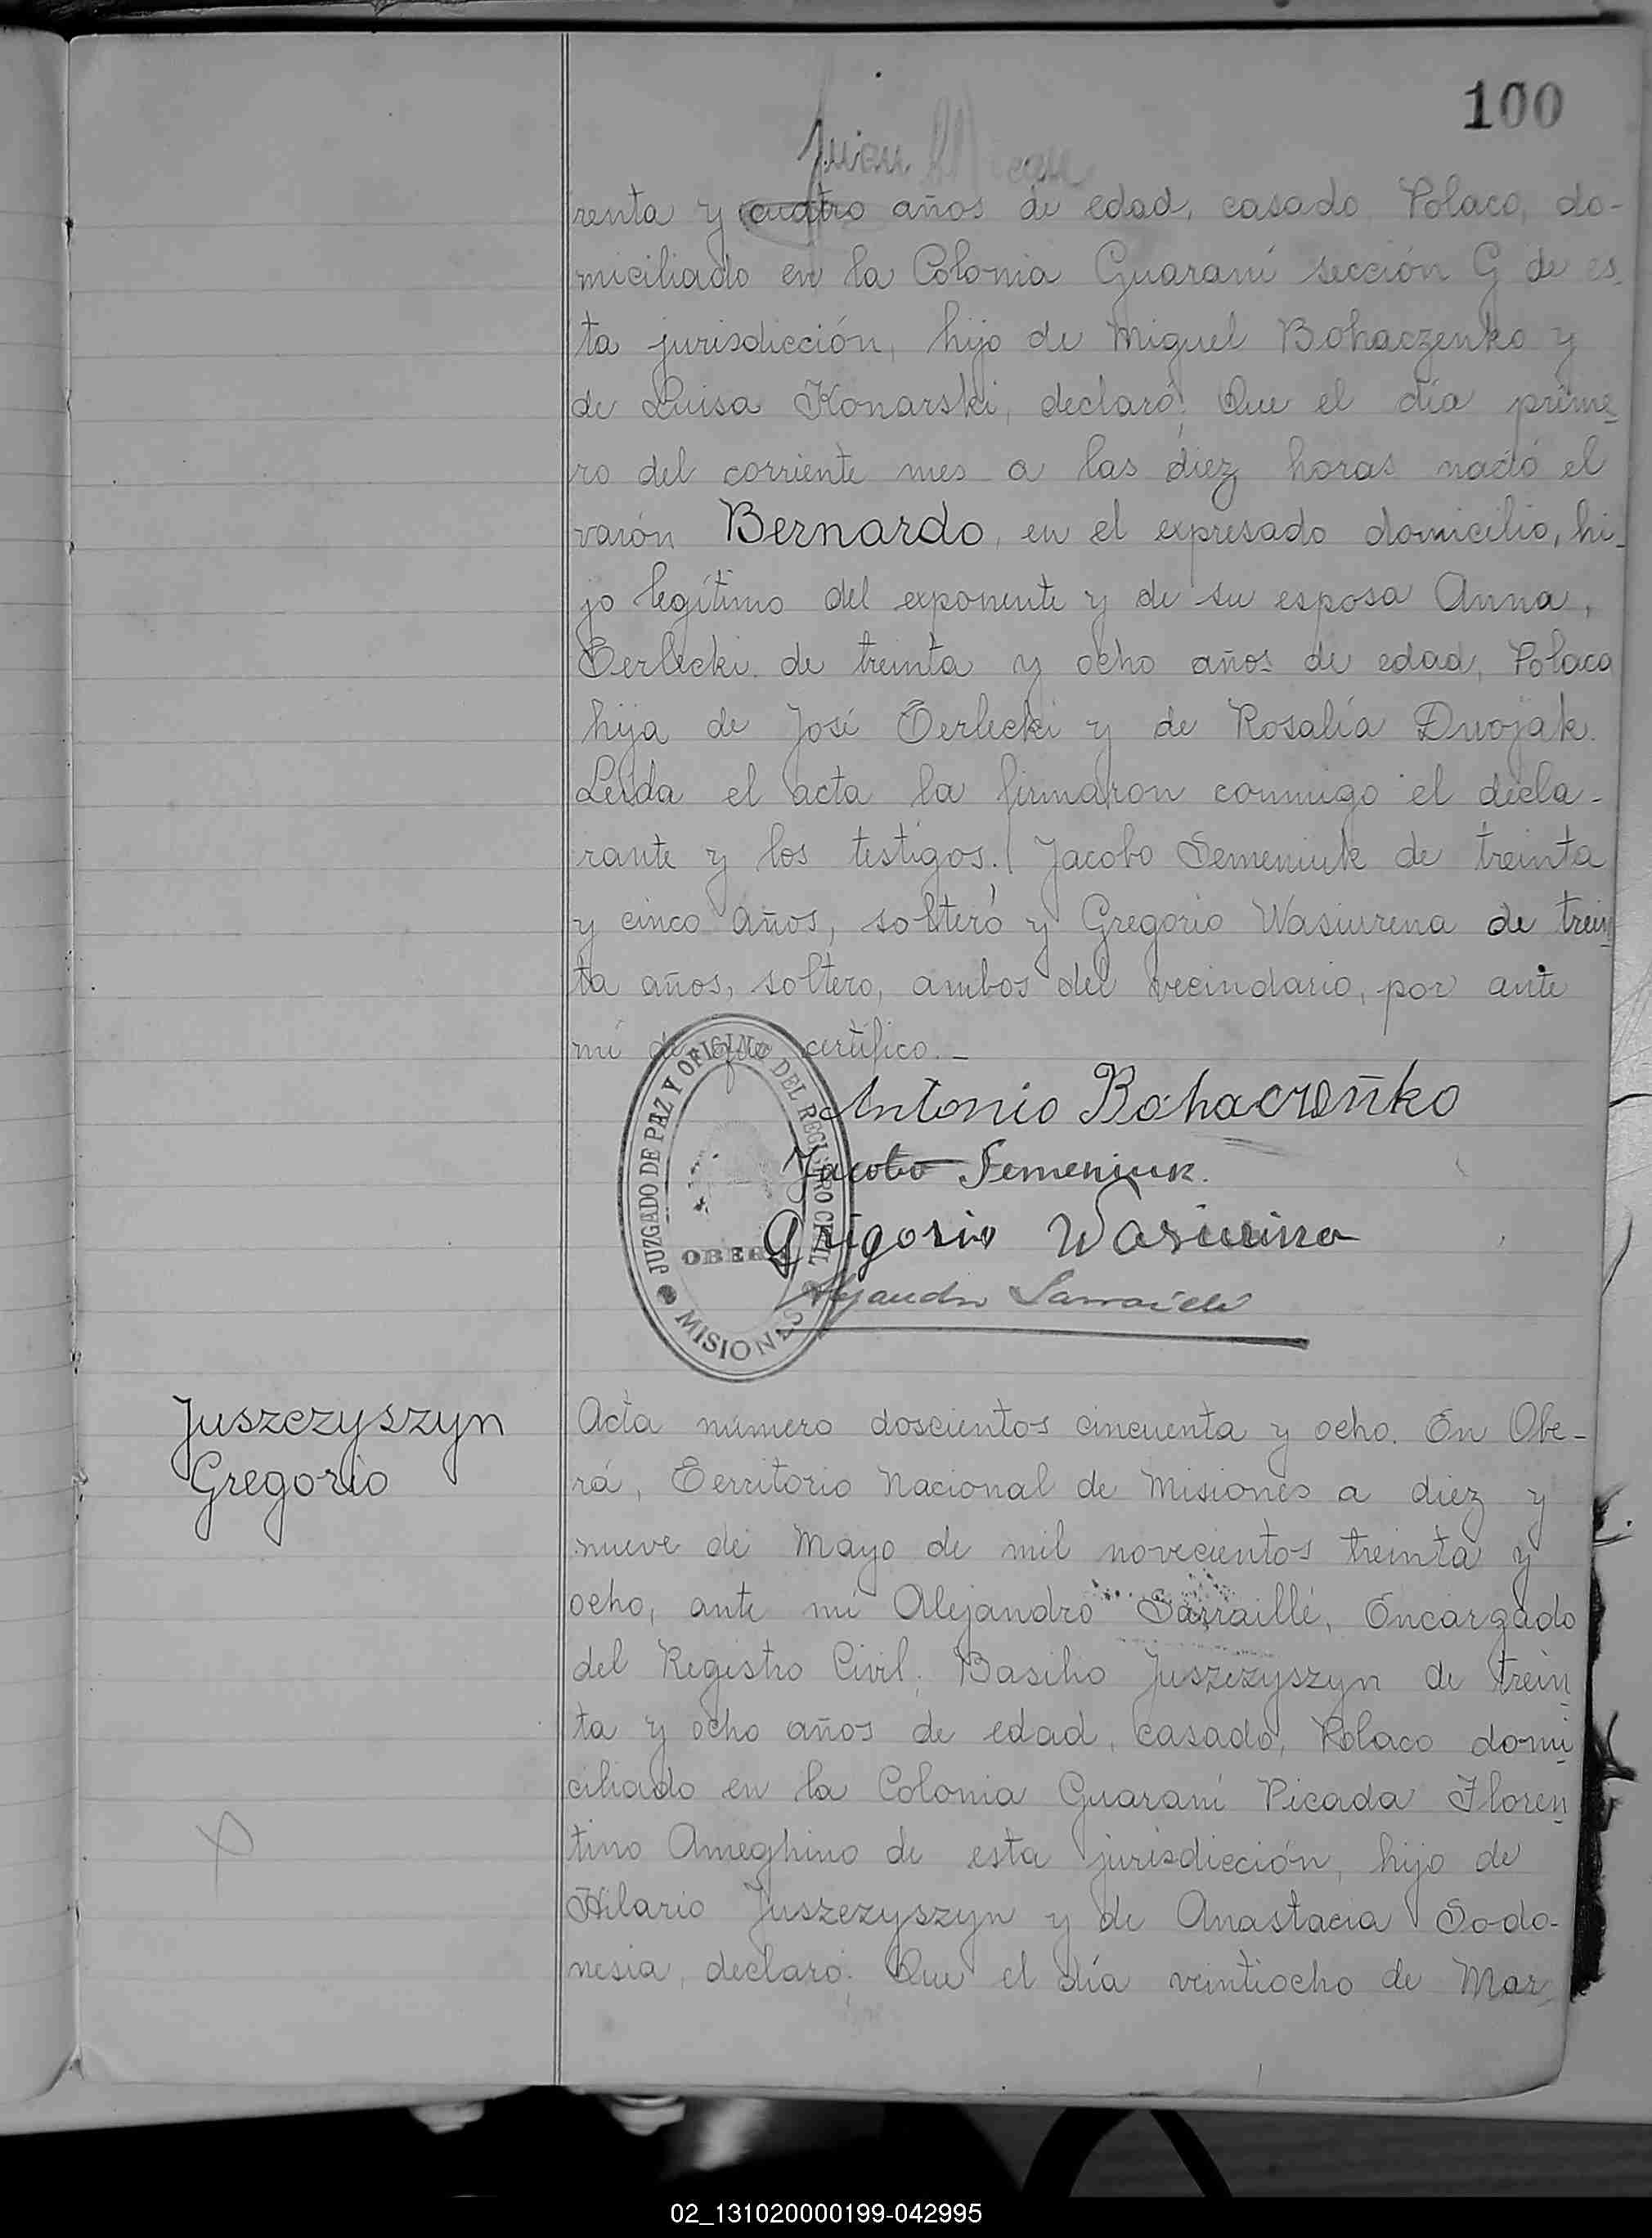 100
Juan
renta y cuatro años de edad, casado, Polaco, do-
miciliado en la Colonia Guaraní sección G de es-
ta jurisdicción, hijo de Miguel Bohaczenko y
de Luisa Konarski, declaró: Que el día prime-
ro del corriente mes a las diez horas nació el
varón Bernardo, en el expresado domicilio, hi-
jo legítimo del exponente y de su esposa Anna,
Terlecki de treinta y ocho años de edad, Polaca
hija de José Terlecki y de Rosalía Dwojak.
Leida el acta la firmaron conmigo el decla-
rante y los testigos. Jacobo Semeniuk de treinta
y cinco años, soltero y Gregorio Wasiurena de trein
ta años, soltero, ambos del vecindario, por ante
mí de que certifico.-
Antonio Bohaczeńko
Jacobo Semeniuk.
Grigorio Wasiurina
Alejandro Sarraillé
JUZGADO DE PAZ Y OFICINA DEL REGISTRO CIVIL
OBERÁ
MISIONES
Juszczyszyn
Gregorio
Acta número doscientos cincuenta y ocho. En Obe-
rá, Territorio Nacional de Misiones a diez y
nueve de Mayo de mil novecientos treinta y
ocho, ante mí Alejandro Sarraillé, Encargado
del Registro Civil; Basilio Juszczyszyn de trein
ta y ocho años de edad, casado, Polaco domi
ciliado en la Colonia Guaraní Picada Floren
tino Ameghino de esta jurisdicción, hijo de
Hilario Juszczyszyn y de Anastacia Sodo-
nesia, declaró: Que el día veintiocho de Mar
02_131020000199-042995